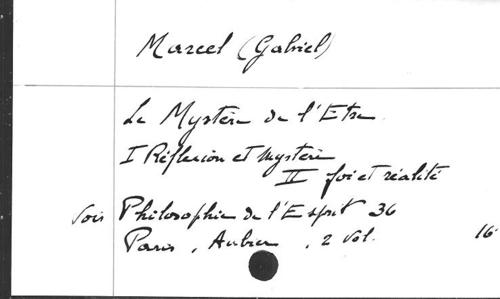 Marcel (Gabriel)
Le Mystère de l'Etre
I Réflexion et mystère
II foi et réalité
Vois Philosophie de l'Esprit 36
Paris, Aubier, 2 vol. 16